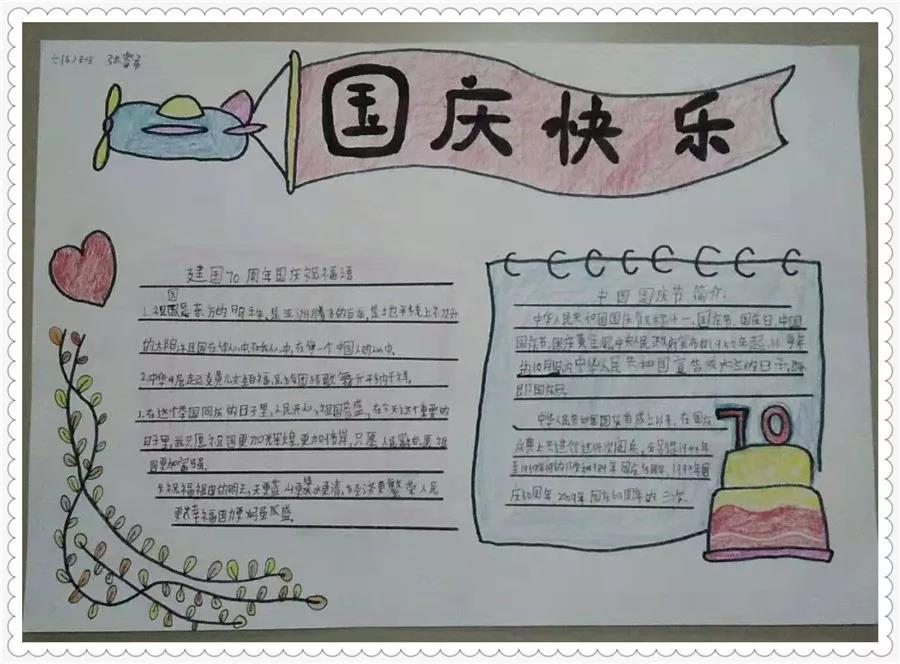 六(6)班 张
国庆快乐
建国70周年国庆祝福语
国
1.祖国是东方的明珠,是亚洲腾飞的巨龙,是地平线上不
的太阳,祖国在你心中,在我心中,在每一个中国人的心中。
2.中华 儿女 福, 团结
3.在这个举国同庆的日子里,人民开心,祖国昌盛,在今天这个重要的
日子里,我只愿祖国更加光辉煌,更加 ,只愿人民 祖
国更加富强。
4.祝福祖国的明天,天更蓝山更绿水更清,经济更繁荣人民
更幸福国力更加强盛。
中国国庆节简介:
中华人民共和国国庆节又称十一、国庆节、国庆日、中国
国庆节、国庆黄金周。中央人民政府宣布自1949年起,以每年
的10月1日为中华人民共和国宣告成立的日子,
即国庆日。
中华人民共和国国 成立以来,在国庆
庆典上共进行过 次阅兵,分别是1949年
至1959年间的11次和1984年国庆35周年、1999年国
庆50周年、2009年国庆60周年的三次。
70